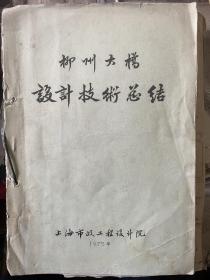 柳州大橋
設計技術总结
上海市政工程设计院